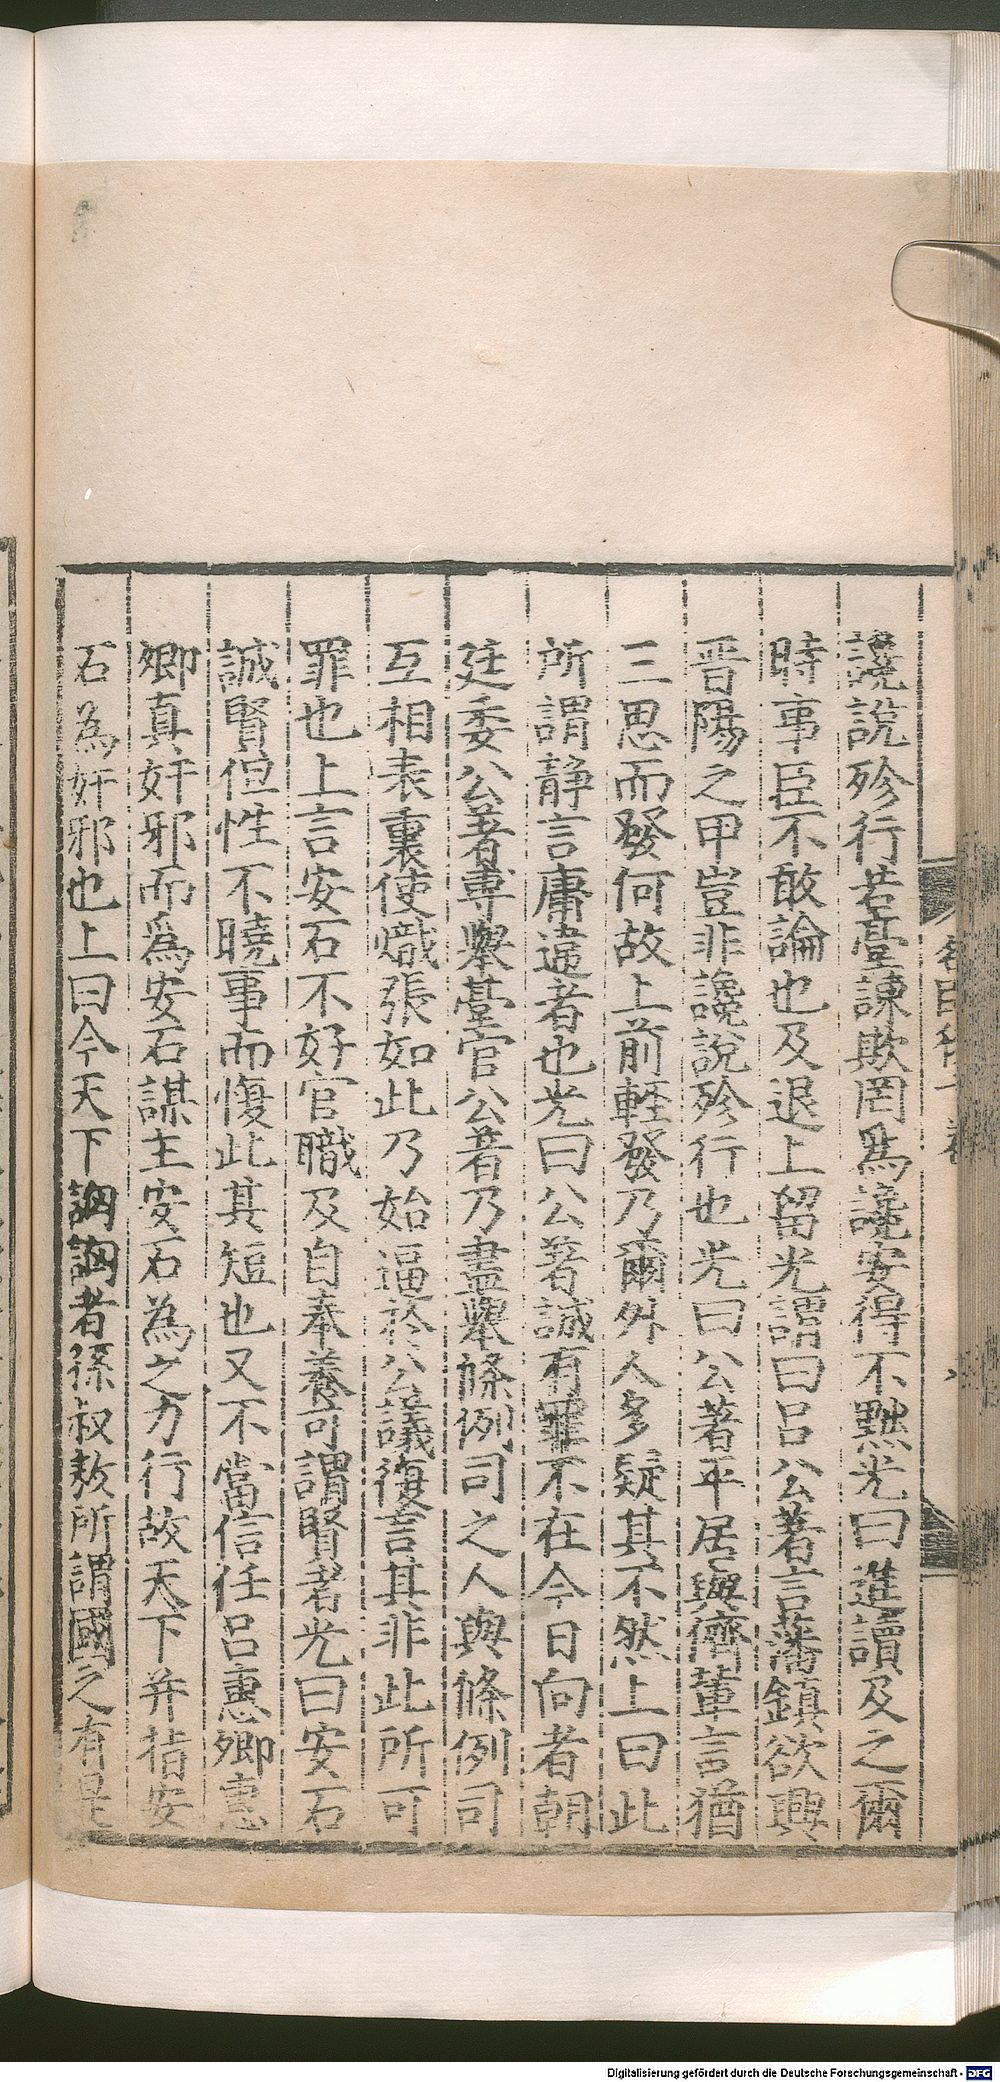 讒說殄行若臺諫欺罔爲讒安得不黙光曰進讀及之爾
時事臣不敢論也及退上留光謂曰吕公著言藩鎮欲興
晋陽之甲豈非讒說殄行也光曰公著平居與儕輩言猶
三思而發何故上前輕發乃爾外人多疑其不然上曰此
所謂静言庸違者也光曰公著誠有罪不在今日向者朝
廷委公著専舉臺官公著乃盡舉條例司之人與條例司
互相表裏使熾張如此乃始逼於公議復言其非此所可
罪也上言安石不好官職及自奉養可謂賢者光曰安石
誠賢但性不曉事而愎此其短也又不當信任吕惠卿惠
卿真奸邪而爲安石謀主安石為之力行故天下并指安
石為奸邪也上曰今天下詾詾者孫叔敖所謂國之有是
Digitalisierung gefördert durch die Deutsche Forschungsgemeinschaft - DFG